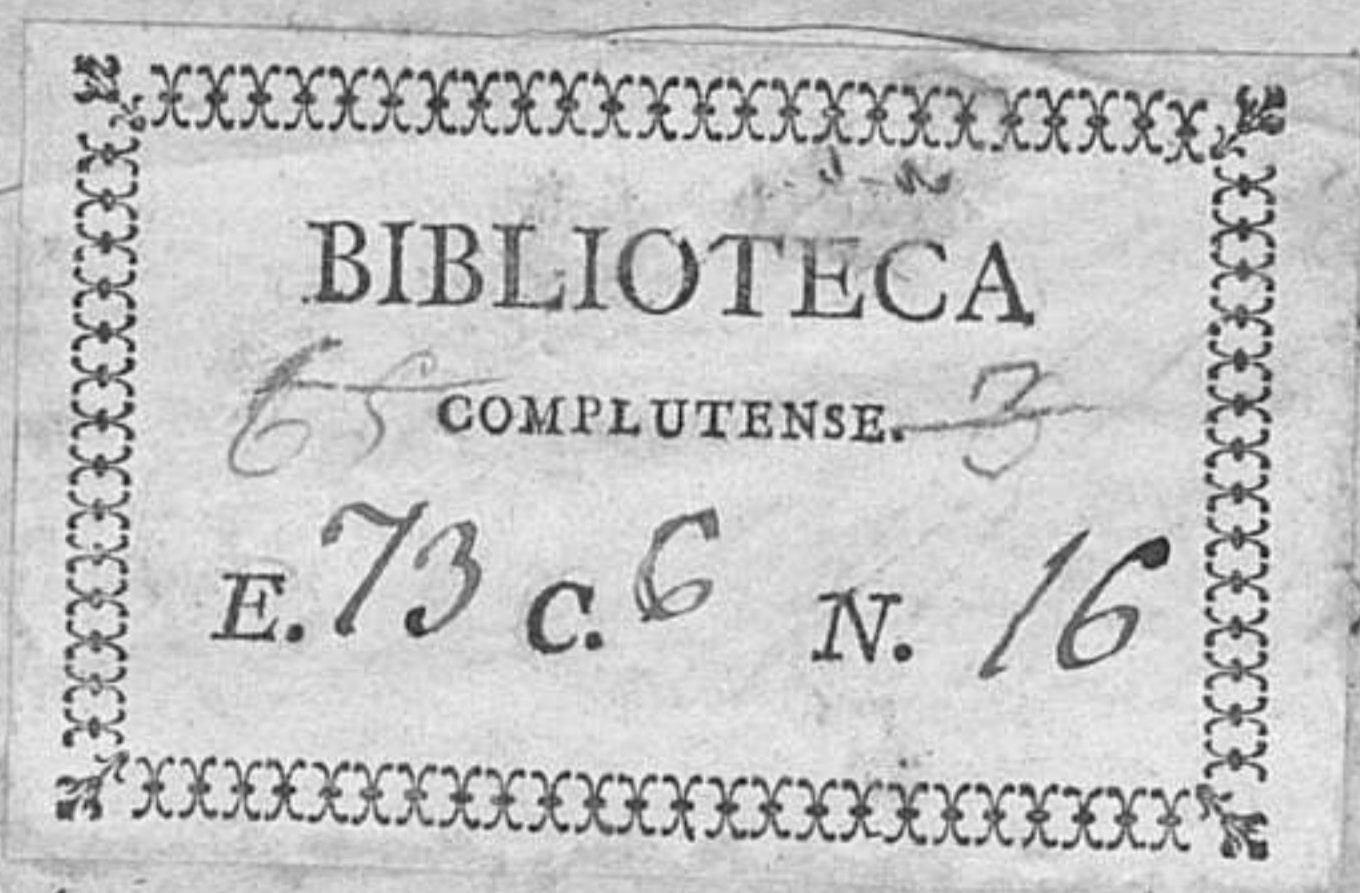 BIBLIOTECA
65 COMPLUTENSE. 3
E. 73 C. 6 N. 16